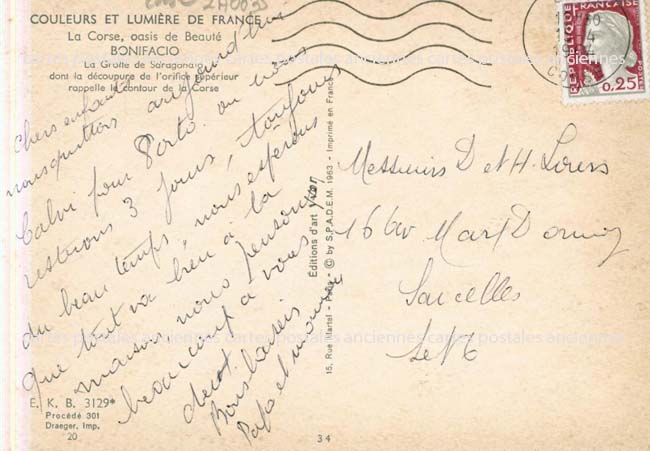 COULEURS ET LUMIÈRE DE FRANCE
La Corse, oasis de Beauté
BONIFACIO
La Grotte de Saragonan
dont la découpure de l'orifice supérieur
rappelle le contour de la Corse
chers enfants
nous quittons aujourd'hui
Calvi pour Porto où nous
resterons 3 jours, toujours
du beau temps, nous espérons
que tout va bien à la
maison, nous pensons
beaucoup à vous
Bons baisers
Papa et maman
E. K. B. 3129*
Procédé 301
Draeger, Imp.
20
Éditions d'art Yvon
15, Rue Martel - Paris - © by S.P.A.D.E.M. 1963 - Imprimé en France
34
REPUBLIQUE FRANÇAISE
0,25
POSTES
Messieurs D et H
16 Av Marx Dormoy
Sarcelles
cartes postales anciennes cartes postales anciennes cartes postales anciennes